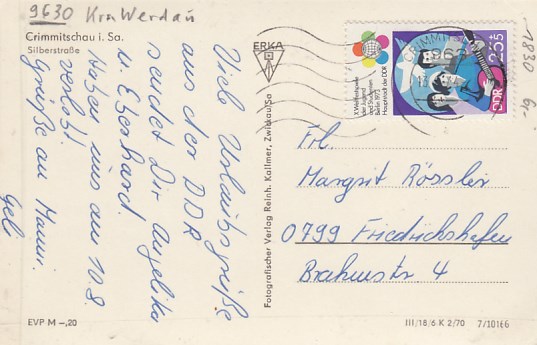 9630 Krs Werdau
Crimmitschau i. Sa.
Silberstraße
Viele Urlaubsgrüße
aus der DDR
sendet Dir Angelika
u. Eberhard.
Haben uns am 10.8.
verlobt.
Grüße an Mann.
Geli
EVP M –,20
ERKA
Fotografischer Verlag Reinh. Kallmer, Zwickau/Sa
X. Weltfestspiele
der Jugend
und Studenten
Berlin 1973
Hauptstadt der DDR
CRIMMITSCHAU
963
25+5
DDR
1830 6,-
Frl.
Margrit Rössler
0799 Friedrichshafen
Brahmstr 4
III/18/6 K 2/70 7/10166